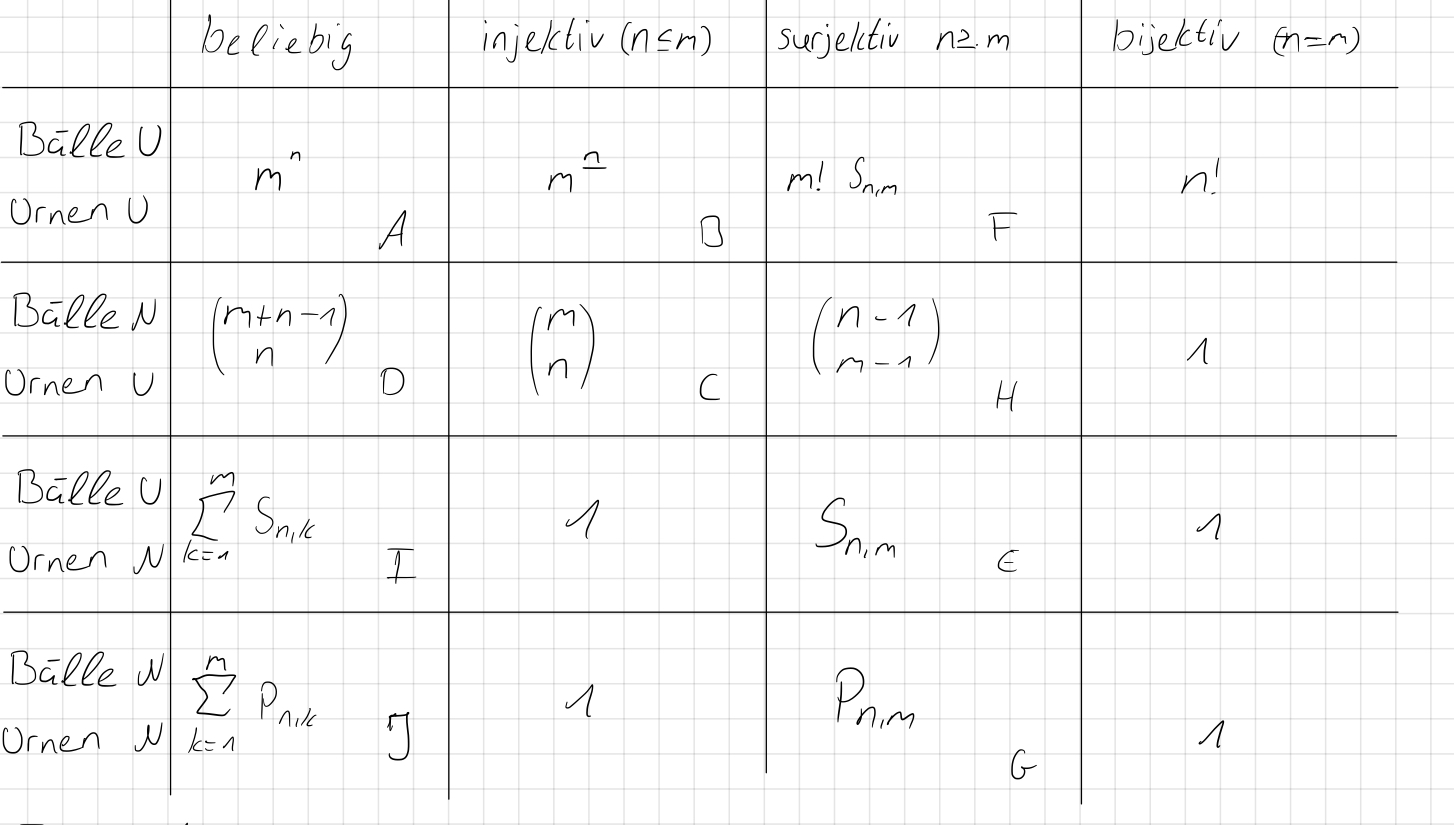 beliebig injektiv (n≤m) surjektiv n≥m bijektiv (n=m)
Bälle U
Urnen U
m^n A
m^{\underline{n}} B
m! S_{n,m} F
n!
Bälle N
Urnen U
\binom{m+n-1}{n} D
\binom{m}{n} C
\binom{n-1}{m-1} H
1
Bälle U
Urnen N
\sum_{k=1}^{m} S_{n,k} I
1
S_{n,m} E
1
Bälle N
Urnen N
\sum_{k=1}^{m} P_{n,k} J
1
P_{n,m} G
1